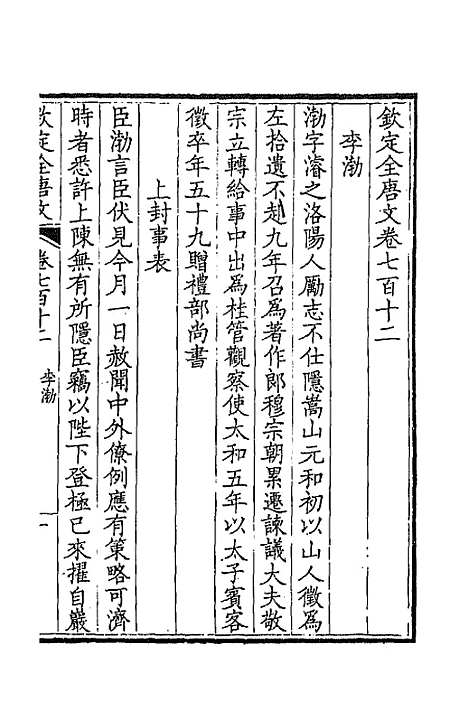 欽定全唐文卷七百十二
李渤
渤字濬之洛陽人勵志不仕隱嵩山元和初以山人徵爲
左拾遺不赴九年召爲著作郎穆宗朝累遷諫議大夫敬
宗立轉給事中出爲桂管觀察使太和五年以太子賓客
徵卒年五十九贈禮部尚書
上封事表
臣渤言臣伏見今月一日赦聞中外僚例應有策略可濟
時者悉許上陳無有所隱臣竊以陛下登極已來擢自嚴
欽定全唐文
卷七百十二
李渤
一